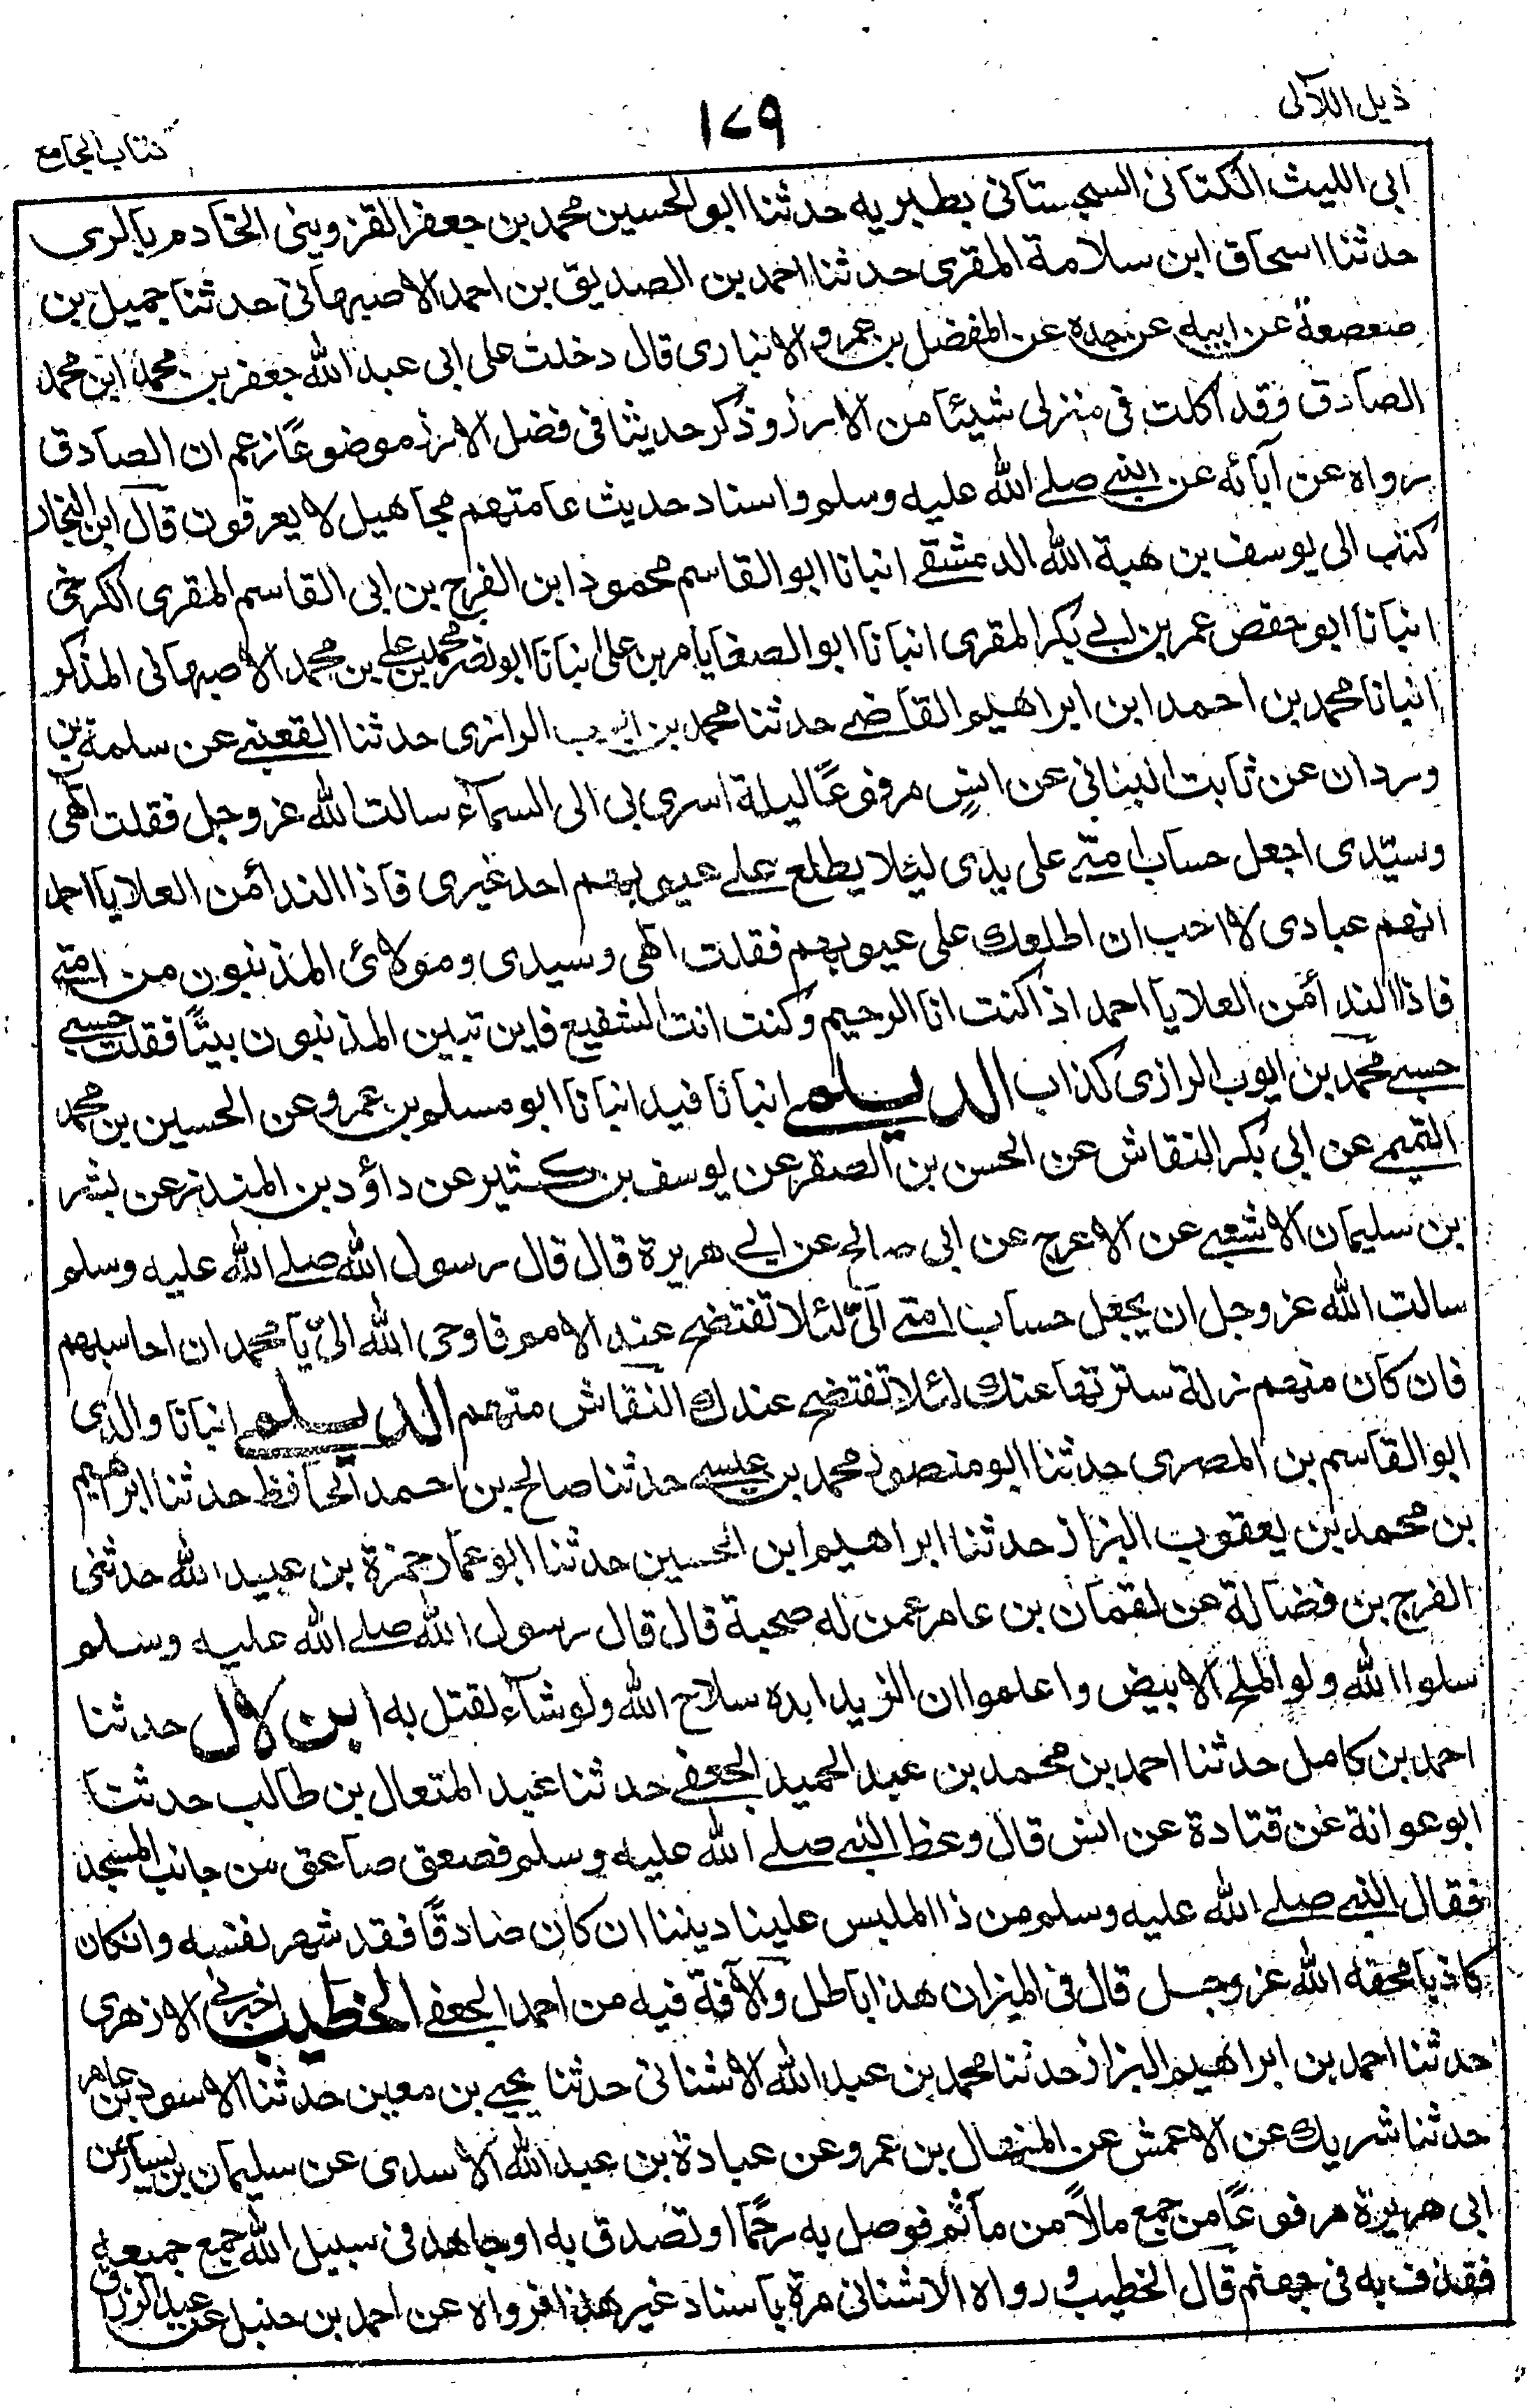 ذيل اللآلى
١٧٩
كتاب الجامع
ابى الليث الكتانى السجستانى بطبريه حدثنا ابو الحسين محمد بن جعفر القزوينى الخادم بالرى
حدثنا اسحاق ابن سلامة المقرى حدثنا احمد بن الصديق بن احمد الاصبهانى حدثنا جميل بن
صعصعة عن ابيه عن جده عن المفضل بن عمرو الانبارى قال دخلت على ابى عبد الله جعفر بن محمد ابن محمد
الصادق فقد اكلت فى منزلى شيئا من الارز وذكر حديثا فى فضل الارز موضوعًا زعم ان الصادق
رواه عن آبائه عن النبى صلے الله عليه وسلم واسناد حديث عامتهم مجاهيل لا يعرفون قال ابن النجار
كتب الى يوسف بن هبة الله الدمشقے انبانا ابو القاسم محمود ابن الفرج بن ابى القاسم المقرى الكرخى
انبانا ابو حفص عمر بن ابے بكر المقرى انبانا ابو الصفا يامر بن على انبانا ابو نصر محمد بن علے بن محمد الاصبهانى المذكور
انبانا محمد بن احمد ابن ابراهيم القاضے حدثنا محمد بن ايوب الرازى حدثنا القعنبے عن سلمة بن
وردان عن ثابت البنانى عن انس مرفوعًا ليلة اسرى بى الى السمآء سالت الله عز وجل فقلت الٰهى
وسيّدى اجعل حساب امتے على يدى ليئلا يطلع علے عيوبهم احد غيرى فاذا الندا من العلا يا احمد
انهم عبادى لا احب ان اطلعك على عيوبهم فقلت الٰهى وسيدى ومولائ المذنبون من امتے
فاذا الندا من العلا يا احمد اذا كنت انا الرحيم وكنت انت الشفيع فاين تبين المذنبون بيننا فقلت حسبے
حسبے محمد بن ايوب الرازى كذاب الديلمے انبانا فيد انبانا ابو مسلم بن عمرو عن الحسين بن محمد
التميمے عن ابى بكر النقاش عن الحسن بن الصقر عن يوسف بن كثير عن داؤد بن المنذر عن بشر
بن سليمان الاشعبے عن الاعرج عن ابى صالح عن ابے هريرة قال قال رسول الله صلے الله عليه وسلم
سالت الله عز وجل ان يجعل حساب امتے الىّ لئلا تفتضح عند الامم فاوحى الله الىّ يا محمد ان احاسبهم
فان كان منهم زلة سترتها عنك لئلا تفتضح عندك النقاش متهم الديلمے انبانا والدى
ابو القاسم بن المصرى حدثنا ابو منصور محمد بن عيسے حدثنا صالح بن احمد الحافظ حدثنا ابراهيم
بن محمد بن يعقوب البزاز حدثنا ابراهيم ابن الحسين حدثنا ابو عمار حمزة بن عبيد الله حدثنى
الفرج بن فضالة عن لقمان بن عامر عمن له صحبة قال قال رسول الله صلے الله عليه وسلم
سلوا الله ولو الملح الابيض واعلموا ان الزيد ابده سلاح الله ولو شآء لقتل به ابن لال حدثنا
احمد بن كامل حدثنا احمد بن محمد بن عبد الحميد الجعفے حدثنا عبد المتعال بن طالب حدثنا
ابو عوانة عن قتادة عن انس قال وعظ النبے صلے الله عليه وسلم فصعق صاعق من جانب المسجد
فقال النبے صلے الله عليه وسلم من ذا الملبس علينا ديننا ان كان صادقًا فقد شهر نفسه وانكان
كاذبا محقه الله عز وجل قال فى الميزان هذا باطل والآفة فيه من احمد الجعفے الخطيب اخبرنے الازهرى
حدثنا احمد بن ابراهيم البزاز حدثنا محمد بن عبد الله الاشنانى حدثنا يحيے بن معين حدثنا الاسود بن عامر
حدثنا شريك عن الاعمش عن المنهال بن عمرو عن عبادة بن عبد الله الاسدى عن سليمان بن يسار عن
ابى هريرة مرفوعًا من جمع مالًا من مآثم فوصل به رحمًا او تصدق به او جاهد فى سبيل الله جمع جميعه
فقذف به فى جهنم قال الخطيب ورواه الاشنانى مرة باسناد غير هذا فرواه عن احمد بن حنبل عن عبد الرزاق